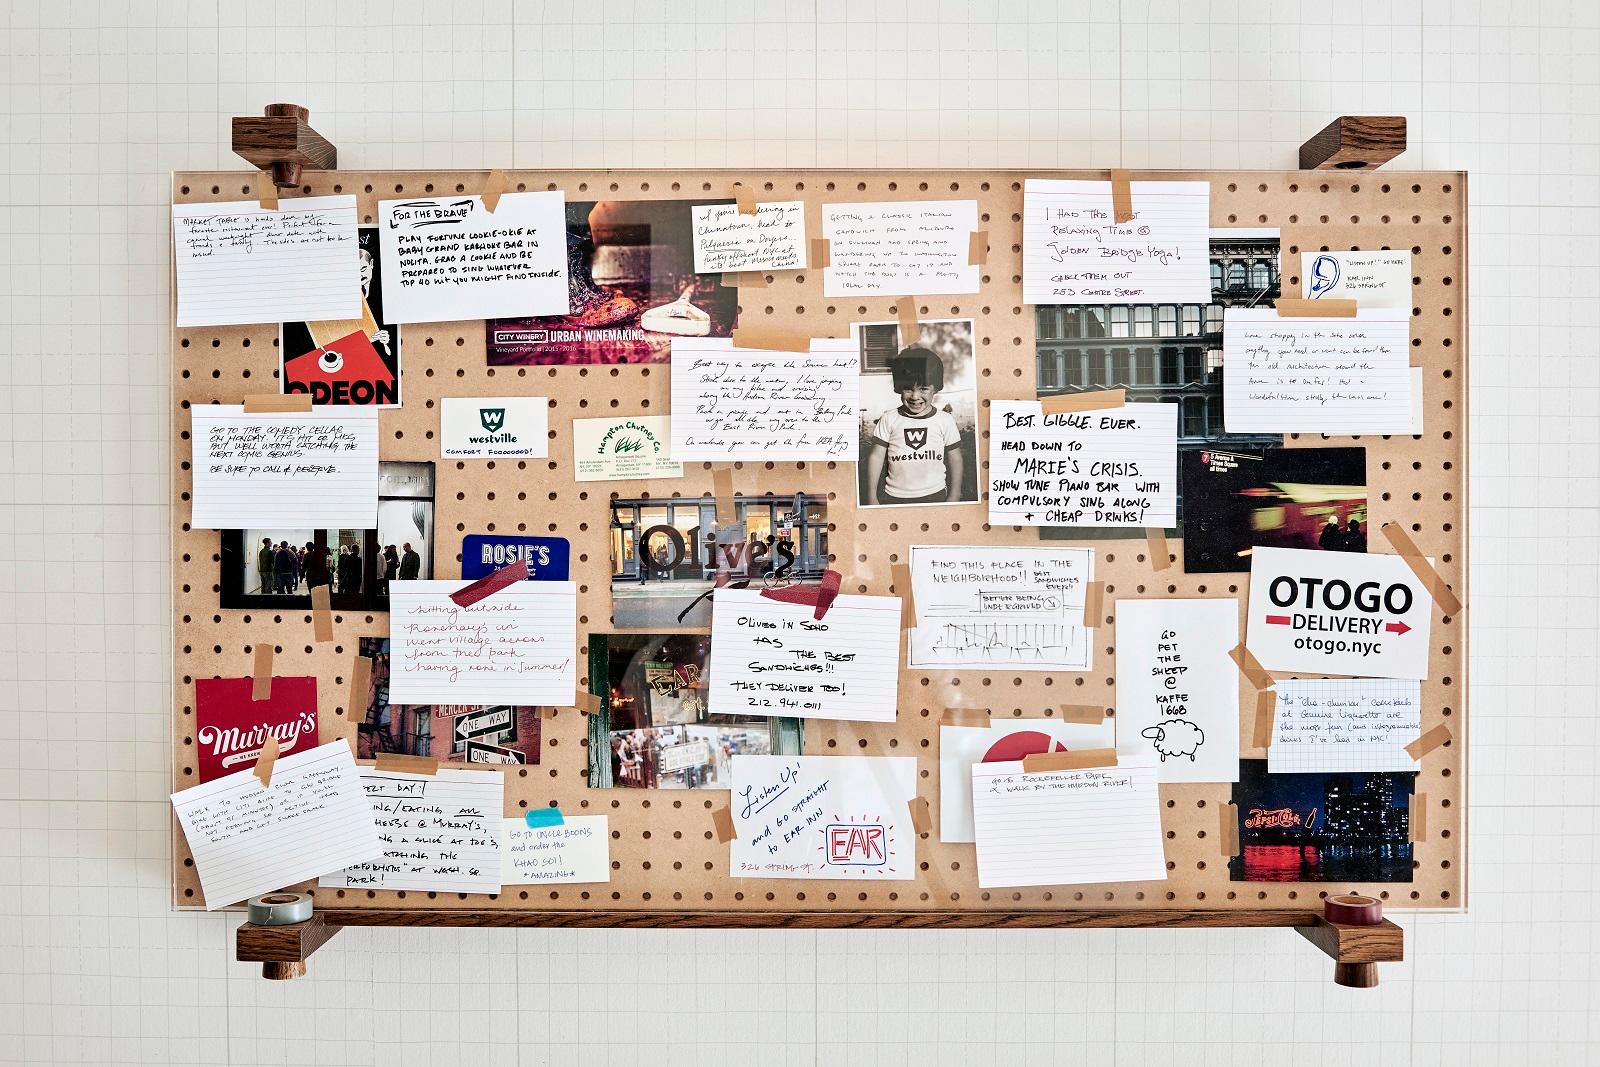 MARKET TABLE is hands down my
favorite restaurant ever! Perfect for a
casual weeknight dinner date with
friends & family. The sides are not to be
missed.
ODEON
FOR THE BRAVE
PLAY FORTUNE COOKIE-OKIE AT
BABY GRAND KARAOKE BAR IN
NOLITA. GRAB A COOKIE AND BE
PREPARED TO SING WHATEVER
TOP 40 HIT YOU MIGHT FIND INSIDE.
CITY WINERY URBAN WINEMAKING
Vineyard Portfolio | 2015 - 2016
If you're wandering in
Chinatown, head to
Pulqueria on Doyers...
funky offshoot NYC at
it's best Mexico meets
China!
GETTING A CLASSIC ITALIAN
SANDWICH FROM
ON SULLIVAN AND SPRING AND
WANDERING UP TO WASHINGTON
SQUARE PARK TO EAT IT AND
WATCH THE DOGS IS A PRETTY
IDEAL DAY.
I HAD THE MOST
RELAXING TIME @
Golden Bridge Yoga!
CHECK THEM OUT
253 CENTRE STREET.
"LISTEN UP!" GO HERE:
EAR INN
326 SPRING ST
Love shopping in the Soho area
anything you need or want can be found then
the old Architecture around the
Area is so
wonderful
GO TO THE COMEDY CELLAR
ON MONDAY. IT'S HIT OR MISS
BUT WELL WORTH CATCHING THE
NEXT COMIC GENIUS.
BE SURE TO CALL & RESERVE.
westville
COMFORT FOOOOOOD!
Hampton Chutney Co.
Best way to escape the Summer heat!?
Stick close to the water, I love jumping
on my bike and cruising
along the Hudson River Greenway.
Pack a picnic and eat in Battery Park
or go all the way over to the
East River Park.
westville
BEST. GIGGLE. EVER.
HEAD DOWN TO
MARIE'S CRISIS.
SHOW TUNE PIANO BAR WITH
COMPULSORY SING ALONG
+ CHEAP DRINKS!
7
5 Avenue &
Times Square
all times
ROSIE'S
Olive's
FIND THIS PLACE IN THE
NEIGHBORHOOD!! BEST
SANDWICHES
EVER!!
BETTER BEING
UNDERGROUND
OTOGO
DELIVERY
otogo.nyc
Sitting outside
Rosemary's in
West Village across
from the park
having rosé in Summer!
OLIVES IN SOHO
HAS
THE BEST
SANDWICHES!!!
THEY DELIVER TOO!
212.941.0111
EAR
GO
PET
THE
SHEEP
@
KAFFE
1668
The "chee-chunker" cocktails
at Genuine Liquorette are
the most fun (and instagramable)
drinks I've had in NYC!
Murray's
MERCER ST
ONE WAY
ONE WAY
WALK TO HUDSON RIVER GREENWAY.
BIKE WITH CITI BIKE TO GW BRIDGE
(ABOUT 45 MINUTES) OR IF YOU'RE
NOT FEELING SO ACTIVE WALK
SOUTH AND GET SHAKE SHACK
DAY!
ING/EATING AN
HEESE @ MURRAY'S,
NG A SLICE AT JOE'S,
ATCHING THE
ERFORMERS" AT WASH. SQ.
PARK!
GO TO UNCLE BOONS
and order the
KHAO SOI!
*AMAZING*
Listen Up!
and GO STRAIGHT
to EAR INN
326 SPRING ST.
EAR
GO TO ROCKEFELLER PARK
& WALK BY THE HUDSON RIVER!
PEPSI-COLA